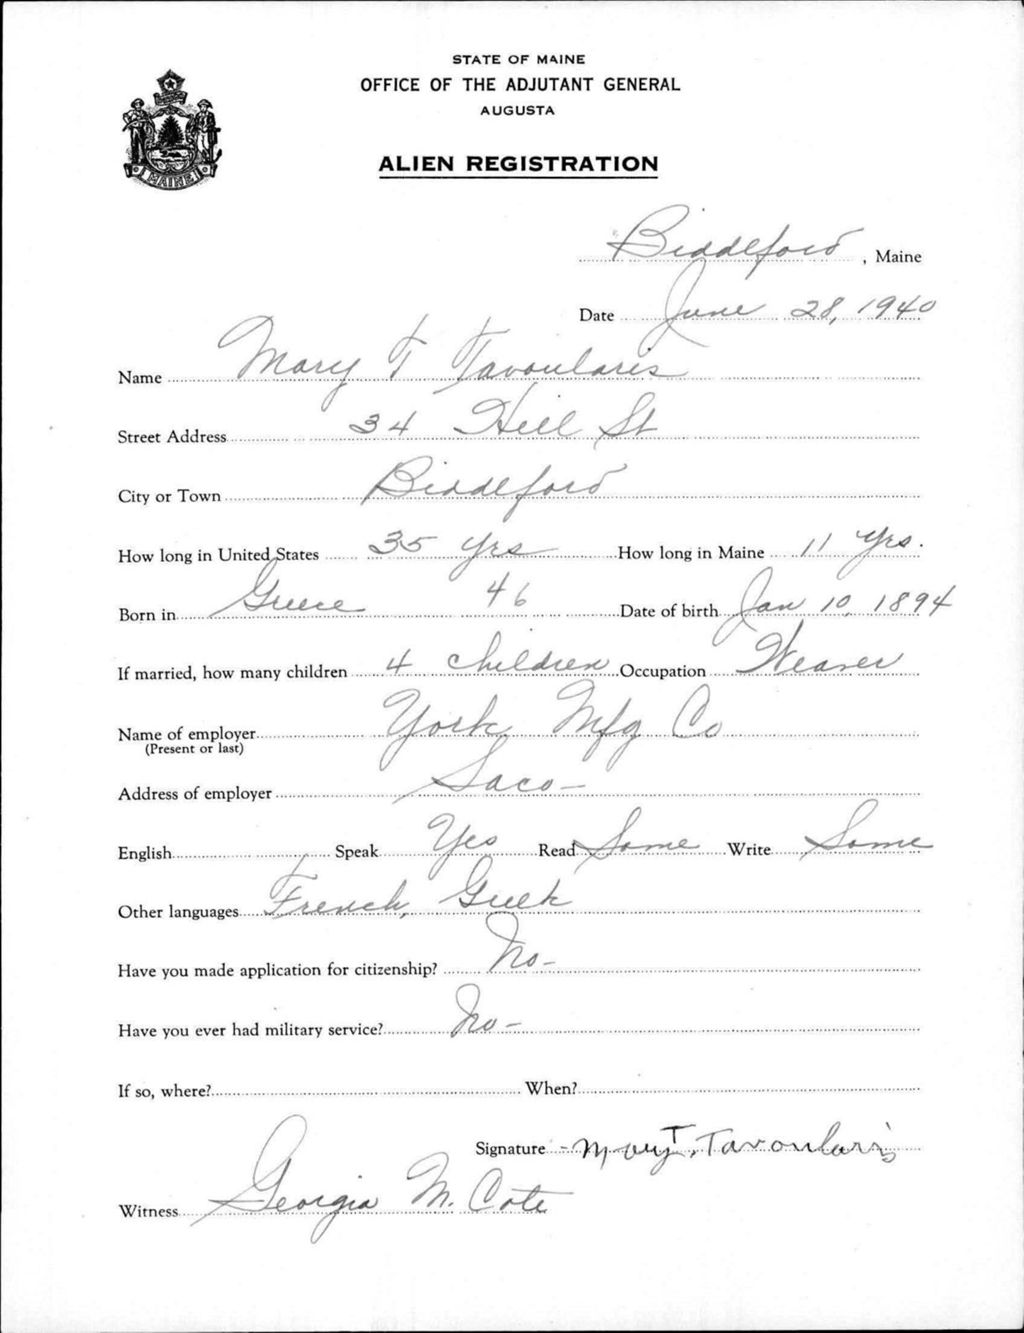 STATE OF MAINE
OFFICE OF THE ADJUTANT GENERAL
AUGUSTA
ALIEN REGISTRATION
MAINE
Biddeford, Maine
Date June 28, 1940
Name Mary T Tavoularis
Street Address 34 Hill St
City or Town Biddeford
How long in United States 35 yrs How long in Maine 11 Yrs.
Born in Greece 46 Date of birth Jan 10, 1894
If married, how many children 4 children Occupation Weaver
Name of employer York Mfg Co
(Present or last)
Address of employer Saco-
English Speak Yes Read Some Write Some
Other languages French, Greek
Have you made application for citizenship? No-
Have you ever had military service? No-
If so, where? When?
Signature Mary T. Tavoularis
Witness Georgia M. Cote